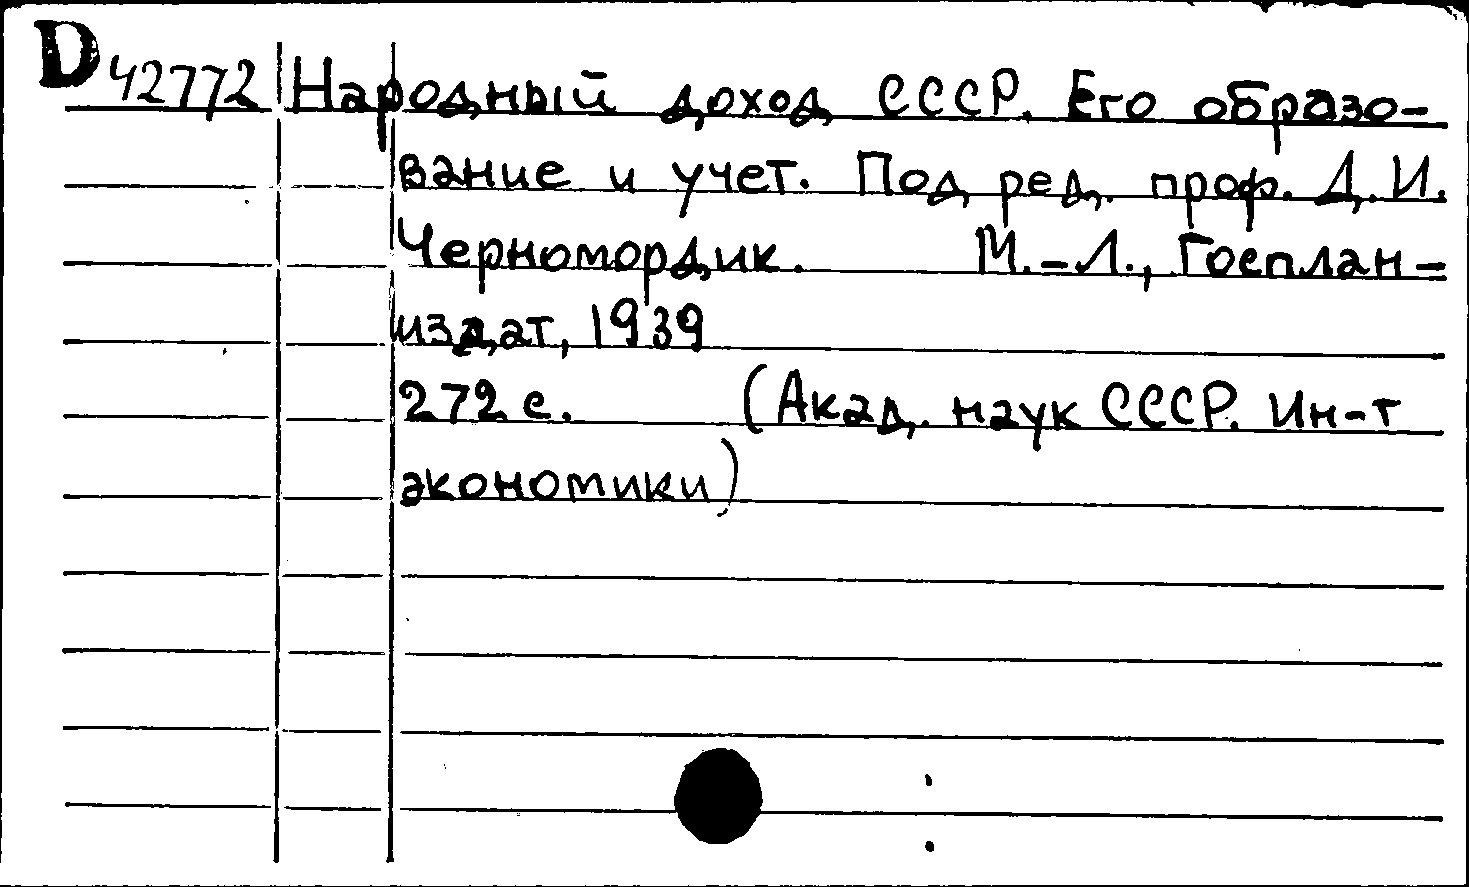 D 42772 Народный доход СССР. Его образо-
вание и учет. Под ред. проф. Д.И.
Черномордик. М.-Л., Госплан-
издат, 1939
272 с. (Акад. наук СССР. Ин-т
экономики)